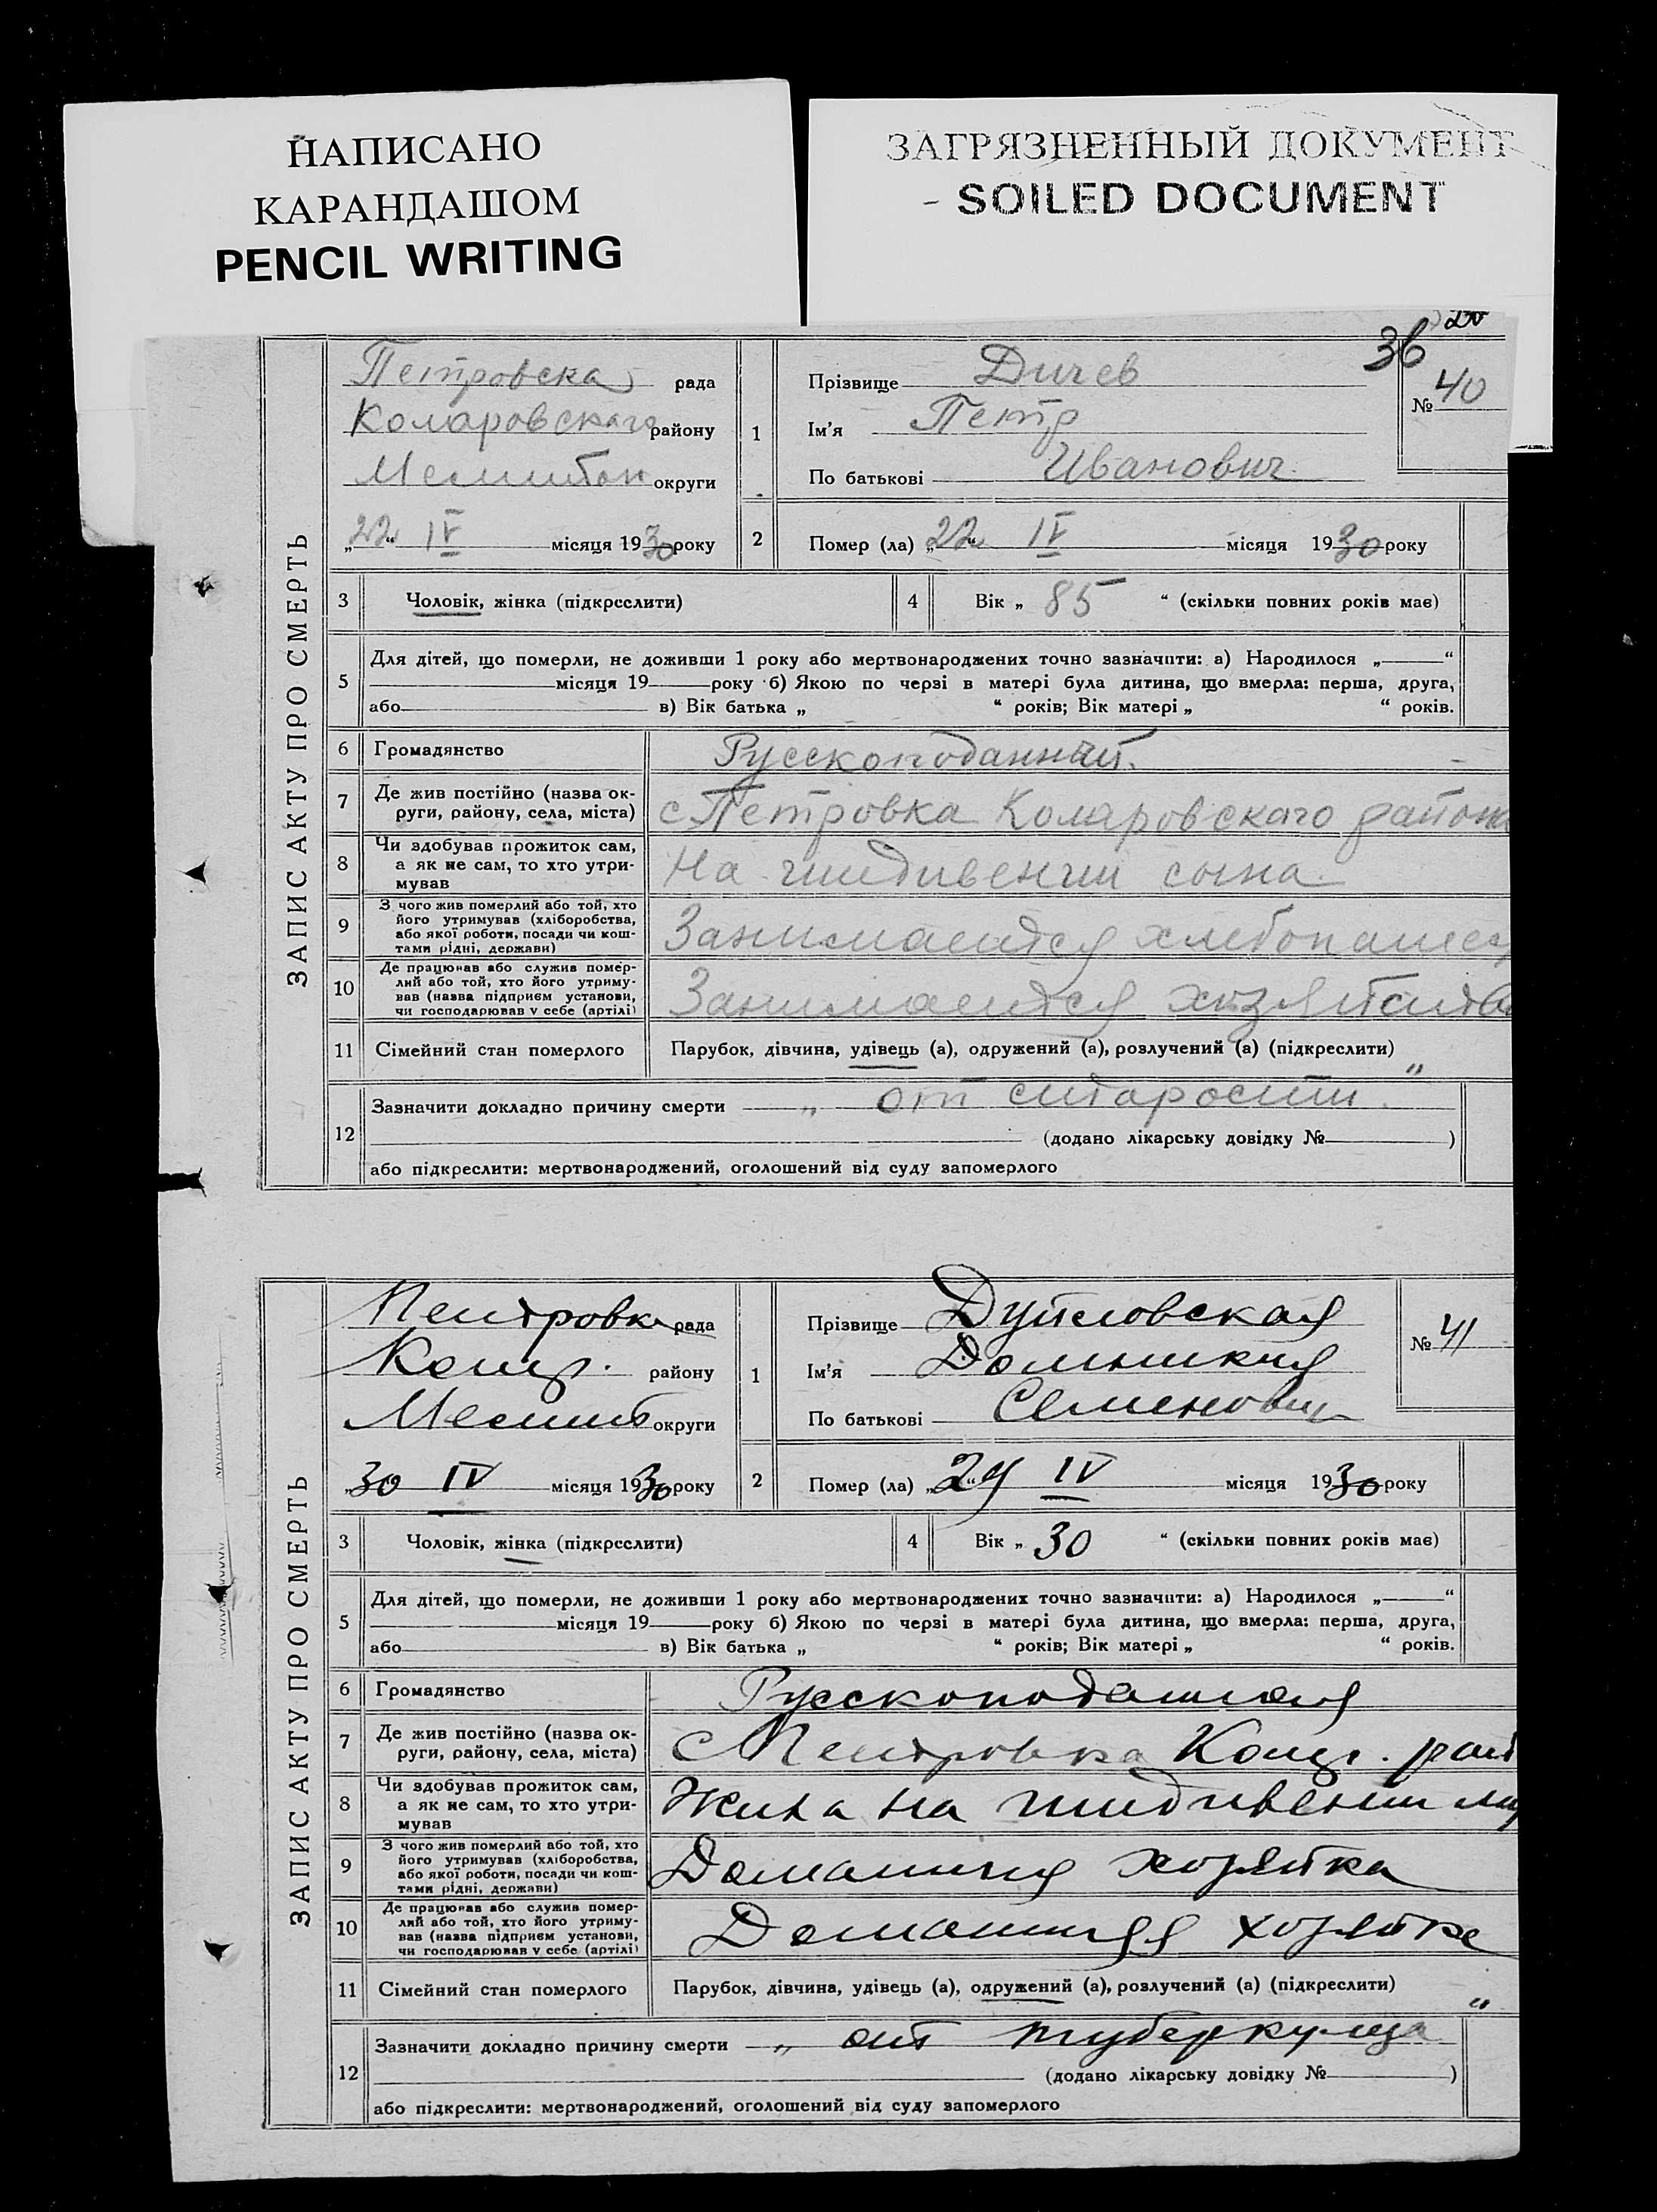 НАПИСАНО
КАРАНДАШОМ
PENCIL WRITING
ЗАГРЯЗНЕННЫЙ ДОКУМЕНТ
- SOILED DOCUMENT
36
ЗАПИС АКТУ ПРО СМЕРТЬ
Петровска рада
Коларовскаго району
Мелитоп округи
„22“ IV місяця 1930 року
1
Прізвище Дичев
Ім’я Петр
По батькові Иванович
№ 40
2 Помер (ла) „22“ IV місяця 1930 року
3 Чоловік, жінка (підкреслити)
4 Вік „ 85 “ (скільки повних років має)
5 Для дітей, що померли, не доживши 1 року або мертвонароджених точно зазначити: а) Народилося „ “
місяця 19 року б) Якою по черзі в матері була дитина, що вмерла: перша, друга,
або в) Вік батька „ “ років; Вік матері „ “ років.
6 Громадянство Русскоподанный.
7 Де жив постійно (назва ок-
руги, району, села, міста) с Петровка Коларовскаго района
8 Чи здобував прожиток сам,
а як не сам, то хто утри-
мував На иждивении сына.
9 З чого жив померлий або той, хто
його утримував (хліборобства,
або якої роботи, посади чи кош-
тами рідні, держави) Занимается
10 Де працював або служив помер-
лий або той, хто його утриму-
вав (назва підприєм установи,
чи господарював у себе (артілі) Занимается
11 Сімейний стан померлого Парубок, дівчина, удівець (а), одружений (а), розлучений (а) (підкреслити)
12 Зазначити докладно причину смерти „ от старости. “
(додано лікарську довідку № )
або підкреслити: мертвонароджений, оголошений від суду запомерлого
ЗАПИС АКТУ ПРО СМЕРТЬ
Петровка рада
району
Мелит округи
„30 IV місяця 1930 року
1
Прізвище
Ім’я
По батькові Семенов
№ 41
2 Помер (ла) „29“ IV місяця 1930 року
3 Чоловік, жінка (підкреслити)
4 Вік „ 30 “ (скільки повних років має)
5 Для дітей, що померли, не доживши 1 року або мертвонароджених точно зазначити: а) Народилося „ “
місяця 19 року б) Якою по черзі в матері була дитина, що вмерла: перша, друга,
або в) Вік батька „ “ років; Вік матері „ “ років.
6 Громадянство Русскоподанная
7 Де жив постійно (назва ок-
руги, району, села, міста) с Петровка
8 Чи здобував прожиток сам,
а як не сам, то хто утри-
мував Жила на иждивении
9 З чого жив померлий або той, хто
його утримував (хліборобства,
або якої роботи, посади чи кош-
тами рідні, держави) Домашня хозяйка
10 Де працював або служив помер-
лий або той, хто його утриму-
вав (назва підприєм установи,
чи господарював у себе (артілі) Домашняя хозяйка
11 Сімейний стан померлого Парубок, дівчина, удівець (а), одружений (а), розлучений (а) (підкреслити)
12 Зазначити докладно причину смерти „ от “
(додано лікарську довідку № )
або підкреслити: мертвонароджений, оголошений від суду запомерлого